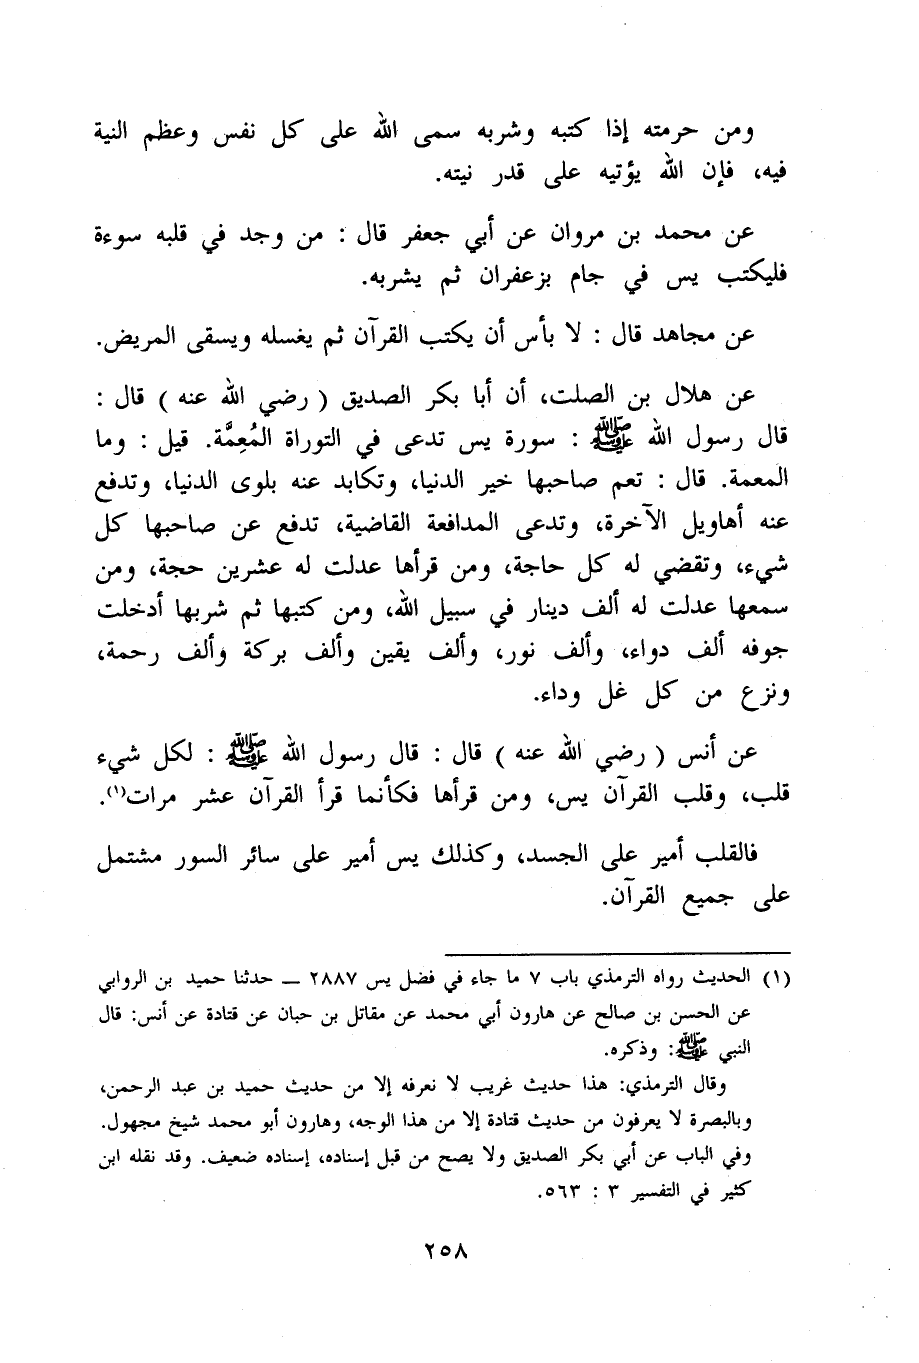 ومن حرمته إذا كتبه وشربه سمى الله على كل نفس وعظم النية
فيه، فإن الله يؤتيه على قدر نيته.
عن محمد بن مروان عن أبي جعفر قال : من وجد في قلبه سوءة
فليكتب يس في جام بزعفران ثم يشربه.
عن مجاهد قال : لا بأس أن يكتب القرآن ثم يغسله ويسقى المريض.
عن هلال بن الصلت، أن أبا بكر الصديق ( رضي الله عنه ) قال :
قال رسول الله ﷺ : سورة يس تدعى في التوراة المُعِمَّة. قيل : وما
المعمة. قال : تعم صاحبها خير الدنيا، وتكابد عنه بلوى الدنيا، وتدفع
عنه أهاويل الآخرة، وتدعى المدافعة القاضية، تدفع عن صاحبها كل
شيء، وتقضي له كل حاجة، ومن قرأها عدلت له عشرين حجة، ومن
سمعها عدلت له ألف دينار في سبيل الله، ومن كتبها ثم شربها أدخلت
جوفه ألف دواء، وألف نور، وألف يقين وألف بركة وألف رحمة،
ونزع من كل غل وداء.
عن أنس ( رضي الله عنه ) قال : قال رسول الله ﷺ : لكل شيء
قلب، وقلب القرآن يس، ومن قرأها فكأنما قرأ القرآن عشر مرات(١).
فالقلب أمير على الجسد، وكذلك يس أمير على سائر السور مشتمل
على جميع القرآن.
(١) الحديث رواه الترمذي باب ٧ ما جاء في فضل يس ٢٨٨٧ ــ حدثنا حميد بن الروابي
عن الحسن بن صالح عن هارون أبي محمد عن مقاتل بن حبان عن قتادة عن أنس: قال
النبي ﷺ: وذكره.
وقال الترمذي: هذا حديث غريب لا نعرفه إلا من حديث حميد بن عبد الرحمن،
وبالبصرة لا يعرفون من حديث قتادة إلا من هذا الوجه، وهارون أبو محمد شيخ مجهول.
وفي الباب عن أبي بكر الصديق ولا يصح من قبل إسناده، إسناده ضعيف. وقد نقله ابن
كثير في التفسير ٣ : ٥٦٣.
٢٥٨